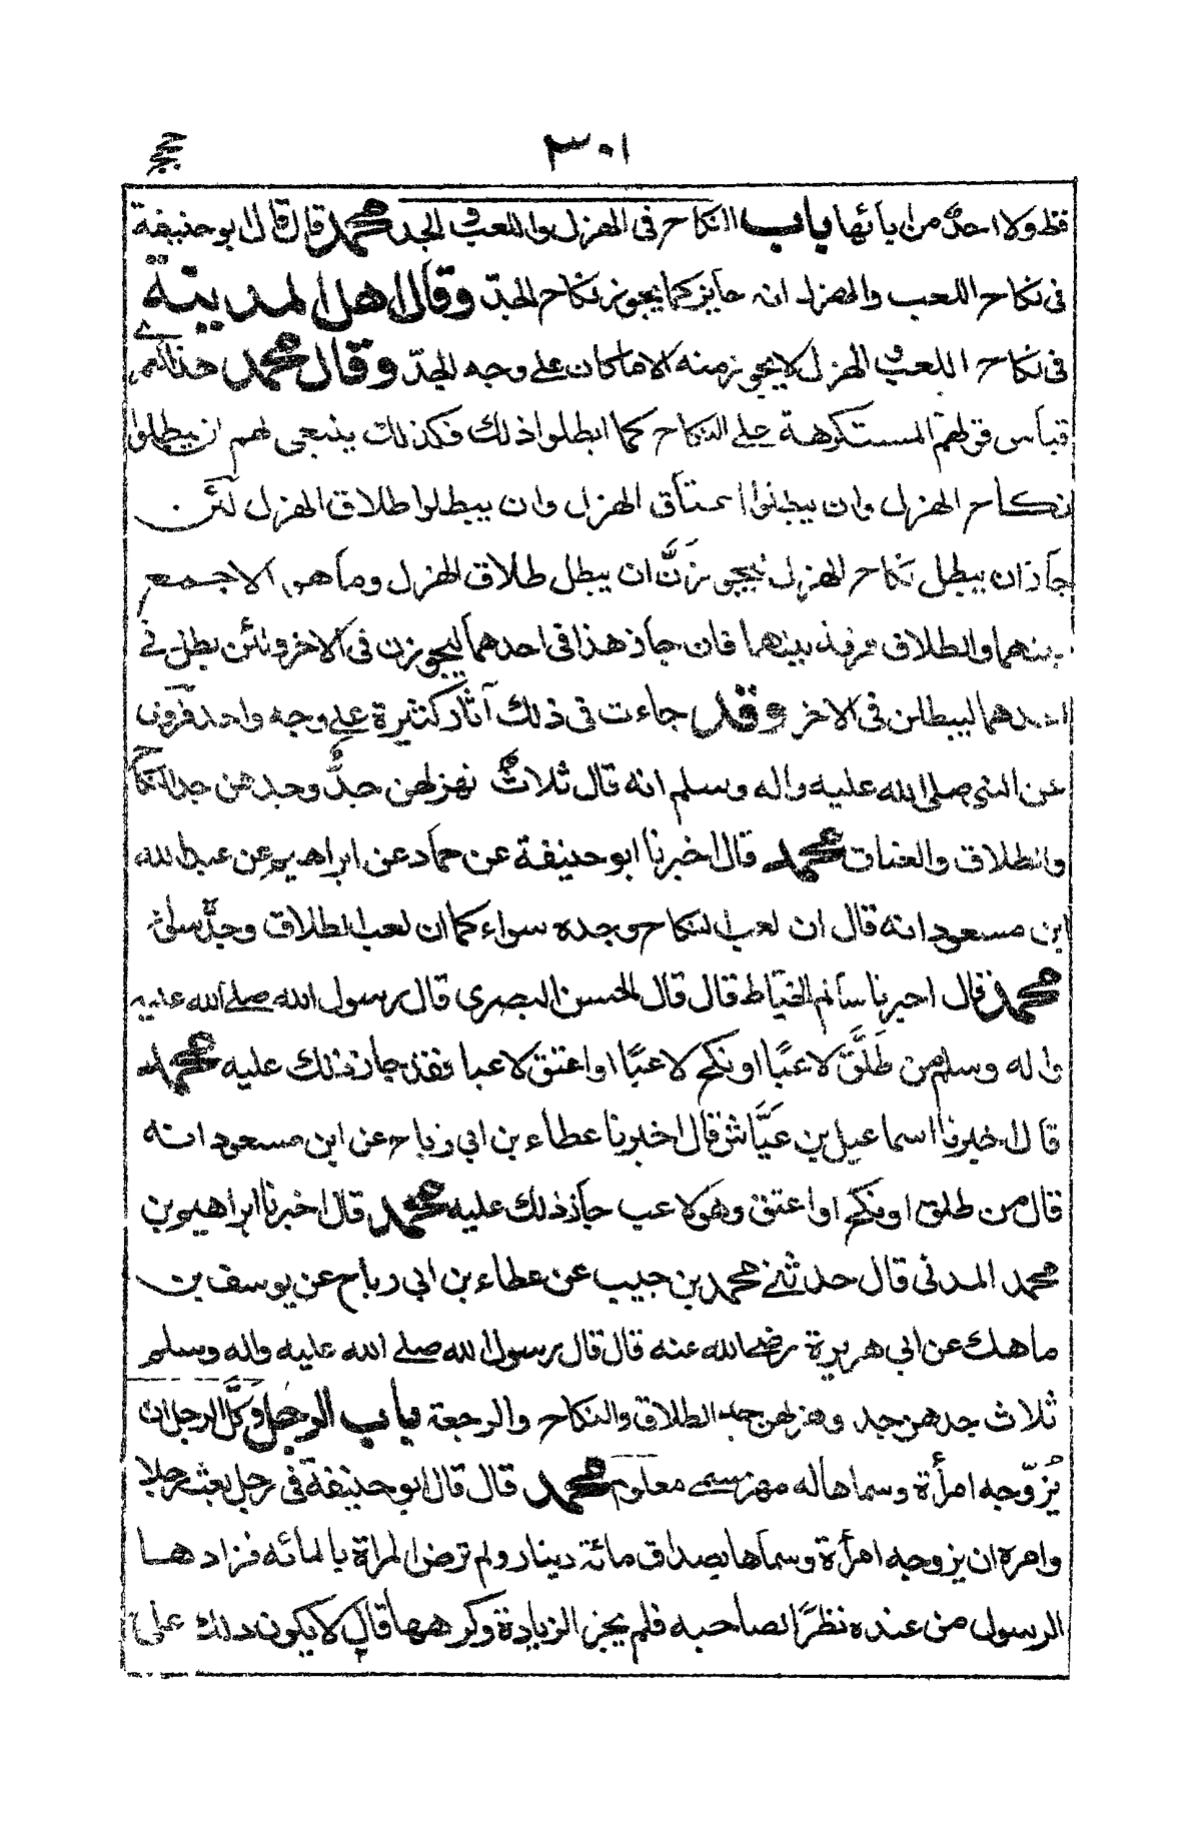 حجج ٣٠١
فظ ولا احدٌ من يأئها باب النكاح فى الهزل واللعب و الجد محمد قال قال ابو حنيفة
فى نكاح اللعب والهزل انه جايز كما يجوز نكاح الجدّ وقال اهل المدينة
فى نكاح اللعب و الهزل لا يجوز منه الا ما كان على وجه الجدّ وقال محمد هذا كله
قياس قولهم المستكرهة على النكاح كما ابطلوا ذلك فكذلك ينبغى لهم ان يبطلوا
نكاح الهزل وان يبطلوا عتاق الهزل وان يبطلوا طلاق الهزل لئن
جاز ان يبطل نكاح الهزل ليجوزنَّ ان يبطل طلاق الهزل وما هو الا جمع
بينهما والطلاق فرقة بينهما فان جاز هذا فى احدهما ليجوزن فى الاخر ولئن بطل فى
احدهما ليبطلن فى الاخر وقد جاءت فى ذلك آثار كثيرة على وجه واحد فروى
عن النبى صلى الله عليه واله وسلم انه قال ثلاث هزلهن جدٌّ وجدهن جد النكاح
والطلاق والعتاق محمد قال اخبرنا ابو حنيفة عن حماد عن ابراهيم عن عبد الله
ابن مسعود انه قال ان لعب النكاح وجده سواء كما ان لعب الطلاق وجدّه سواء
محمد قال اخبرنا سالم الخياط قال قال الحسن البصرى قال رسول الله صلى الله عليه
واله وسلم من طَلَّق لاعبًا او نكح لاعبًا او اعتق لاعبا فقد جاز ذلك عليه محمد
قال اخبرنا اسماعيل بن عَيَّاش قال اخبرنا عطاء بن ابى رباح عن ابن مسعود انه
قال من طلق او نكح او اعتق وهو لاعب جاز ذلك عليه محمد قال اخبرنا ابراهيم بن
محمد المدنى قال حدثنى محمد بن حبيب عن عطاء بن ابى رباح عن يوسف بن
ماهك عن ابى هريرة رضى الله عنه قال قال رسول الله صلى الله عليه واله وسلم
ثلاث جدهن جد وهزلهن جد الطلاق والنكاح والرجعة باب الرجل وكَّل الرجل ان
يُزوّجه امرأة وسماها له مهر سمى معلوم محمد قال قال ابو حنيفة فى رجل بعث رجلا
وامره ان يزوجه امرأة وسماها بصداق مائة دينار ولم ترض المراة بالمائه فزادها
الرسول من عنده نظرًا لصاحبه فلم يجز الزيادة وكرهها قال لا يكون ذلك على